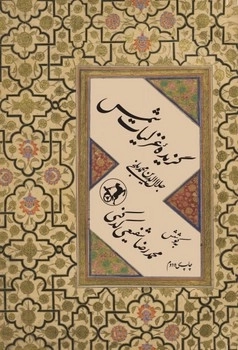 گزیده غزلیات شمس
جلال‌الدین محمد بلخی
بکوشش
محمدرضا شفیعی کدکنی
چاپ دوم